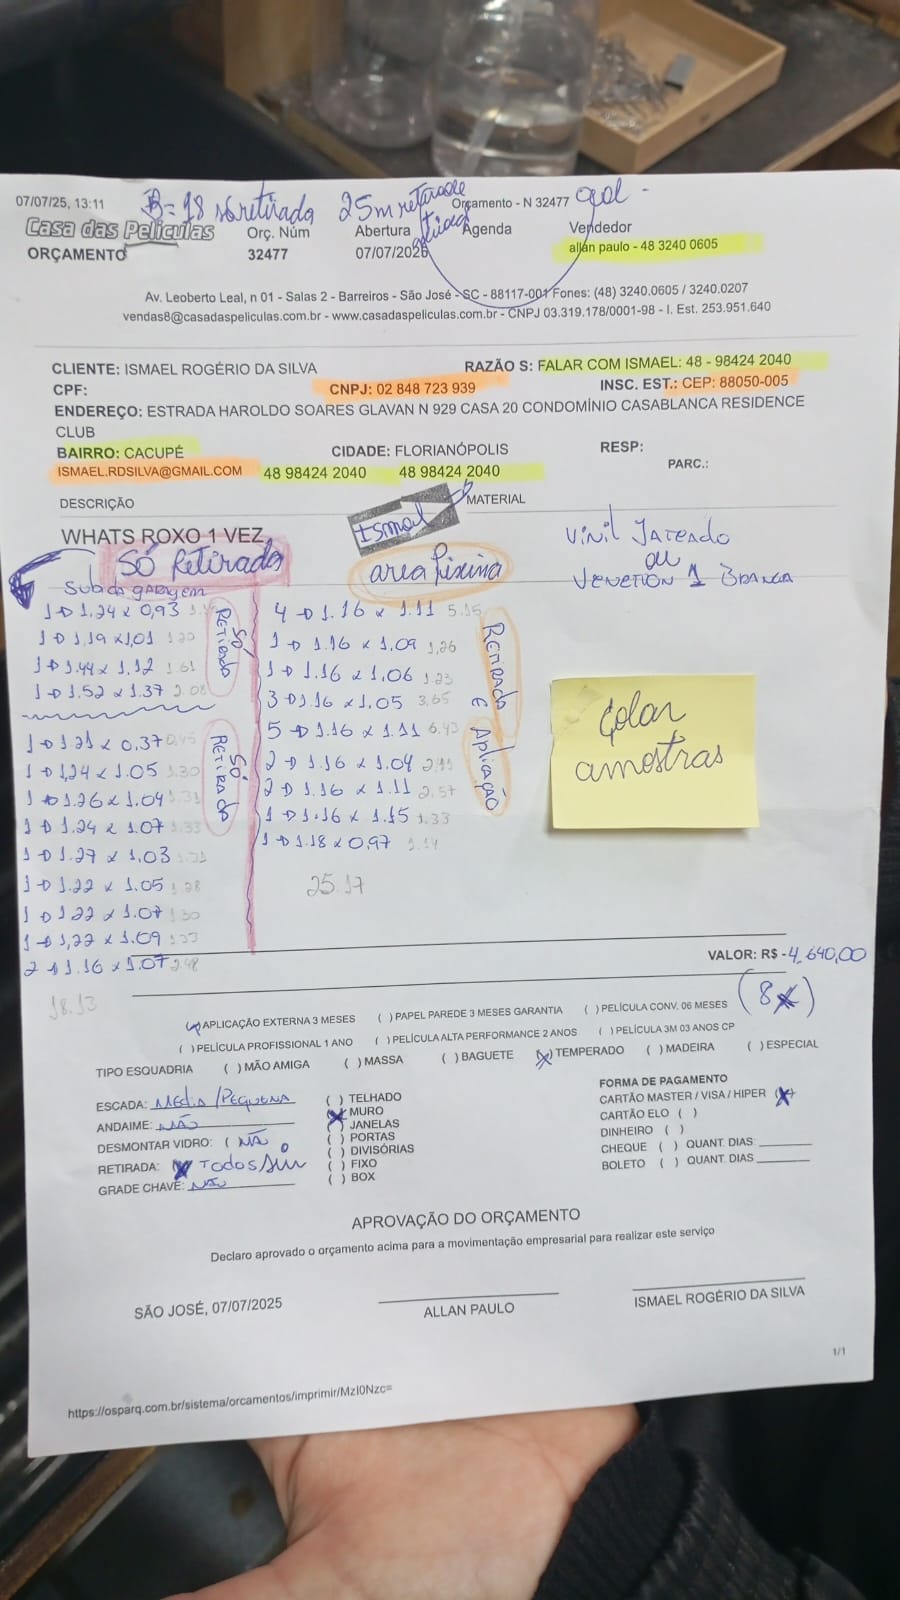 07/07/25, 13:11
B= 18 só retirada 25m retirada
Orçamento - N 32477
Casa das Películas
Orç. Núm Abertura Agenda Vendedor
ORÇAMENTO 32477 07/07/2025 allan paulo - 48 3240 0605
Av. Leoberto Leal, n 01 - Salas 2 - Barreiros - São José - SC - 88117-001 Fones: (48) 3240.0605 / 3240.0207
vendas8@casadaspeliculas.com.br - www.casadaspeliculas.com.br - CNPJ 03.319.178/0001-98 - I. Est. 253.951.640
CLIENTE: ISMAEL ROGÉRIO DA SILVA RAZÃO S: FALAR COM ISMAEL: 48 - 98424 2040
CPF: CNPJ: 02 848 723 939 INSC. EST.: CEP: 88050-005
ENDEREÇO: ESTRADA HAROLDO SOARES GLAVAN N 929 CASA 20 CONDOMÍNIO CASABLANCA RESIDENCE
CLUB
BAIRRO: CACUPÉ CIDADE: FLORIANÓPOLIS RESP:
PARC.:
ISMAEL.RDSILVA@GMAIL.COM 48 98424 2040 48 98424 2040
DESCRIÇÃO MATERIAL
WHATS ROXO 1 VEZ
Ismael
Vinil Jateado
ou
Venetion 1 Branca
Só Retirada
Sub da garagem
1 → 1,24 x 0,93
1 → 1,19 x 1,01 1.20
1 → 1.44 x 1.12 1.61
1 → 1.52 x 1.37 2.08
SÓ RETIRADA
1 → 1.21 x 0,37 0,45
1 → 1,24 x 1.05 1.30
1 → 1.26 x 1.04 1.31
1 → 1.24 x 1.07 1.33
1 → 1.27 x 1,03 1.31
1 → 1.22 x 1.05 1.28
1 → 1.22 x 1.07 1.30
1 → 1,22 x 1.09 1.33
2 → 1.16 x 1.07 2.48
SÓ RETIRADA
18.13
area Piscina
4 → 1.16 x 1.11 5.15
1 → 1.16 x 1.09 1,26
1 → 1.16 x 1.06 1.23
3 → 1.16 x 1.05 3,65
5 → 1.16 x 1.11 6.43
2 → 1.16 x 1.04 2.41
2 → 1.16 x 1.11 2.57
1 → 1.16 x 1.15 1.33
1 → 1.18 x 0,97 1.14
RETIRADA E Aplicação
25.17
Colar
amostras
VALOR: R$ - 4.640,00
(8x)
APLICAÇÃO EXTERNA 3 MESES ( ) PAPEL PAREDE 3 MESES GARANTIA ( ) PELÍCULA CONV. 06 MESES
( ) PELÍCULA PROFISSIONAL 1 ANO ( ) PELÍCULA ALTA PERFORMANCE 2 ANOS ( ) PELÍCULA 3M 03 ANOS CP
TIPO ESQUADRIA ( ) MÃO AMIGA ( ) MASSA ( ) BAGUETE (X) TEMPERADO ( ) MADEIRA ( ) ESPECIAL
ESCADA: Media/Pequena
ANDAIME: NÃO
DESMONTAR VIDRO: ( NÃO
RETIRADA: X Todos Sim
GRADE CHAVE: NÃO
( ) TELHADO
(X) MURO
( ) JANELAS
( ) PORTAS
( ) DIVISÓRIAS
( ) FIXO
( ) BOX
FORMA DE PAGAMENTO
CARTÃO MASTER / VISA / HIPER (X)
CARTÃO ELO ( )
DINHEIRO ( )
CHEQUE ( ) QUANT. DIAS:
BOLETO ( ) QUANT. DIAS
APROVAÇÃO DO ORÇAMENTO
Declaro aprovado o orçamento acima para a movimentação empresarial para realizar este serviço
SÃO JOSÉ, 07/07/2025
ALLAN PAULO
ISMAEL ROGÉRIO DA SILVA
1/1
https://osparq.com.br/sistema/orcamentos/imprimir/MzI0Nzc=